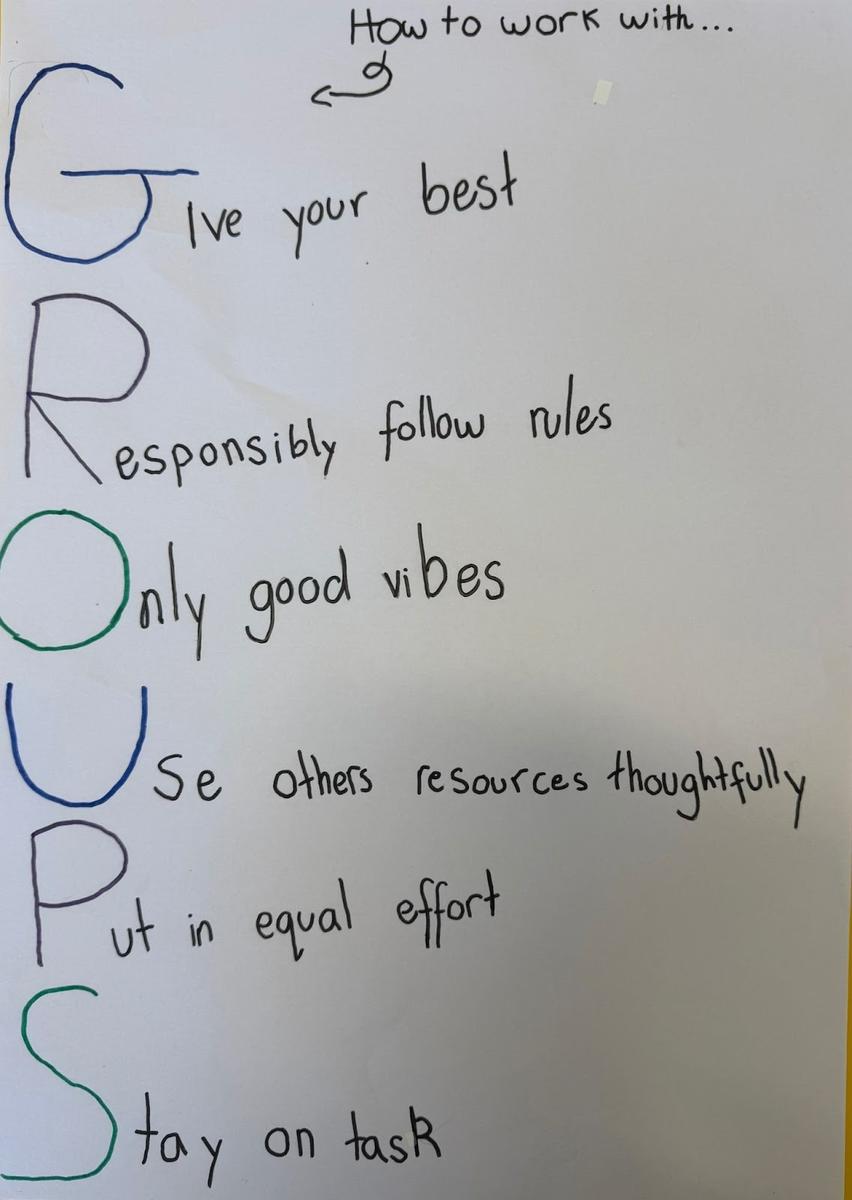 How to work with...
GIve your best
Responsibly follow rules
Only good vibes
Use others resources thoughtfully
Put in equal effort
Stay on task